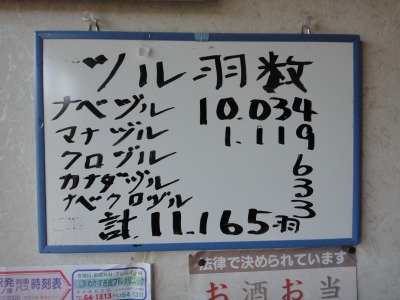 ツル羽数
ナベヅル 10.034
マナヅル 1.119
クロヅル 6
カナダヅル 3
ナベクロヅル 3
計 11.165羽
時刻表
わかすぎ皮フ科クリニック
64-1313
法律で決められています
お酒お